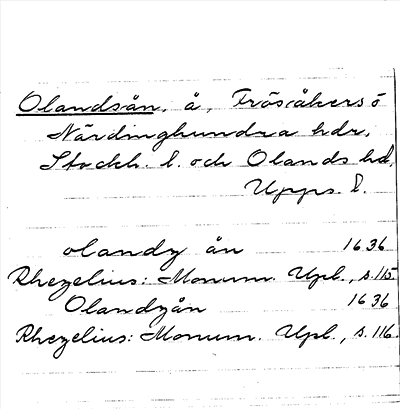 Olandsån, å, Frösåkers o
Närdinghundra hdr,
Stockh. l. och Olands hd,
Upps. l.
olandz ån 1636
Rhezelius: Monum. Upl., s. 115
Olandzån 1636
Rhezelius: Monum. Upl., s. 116.